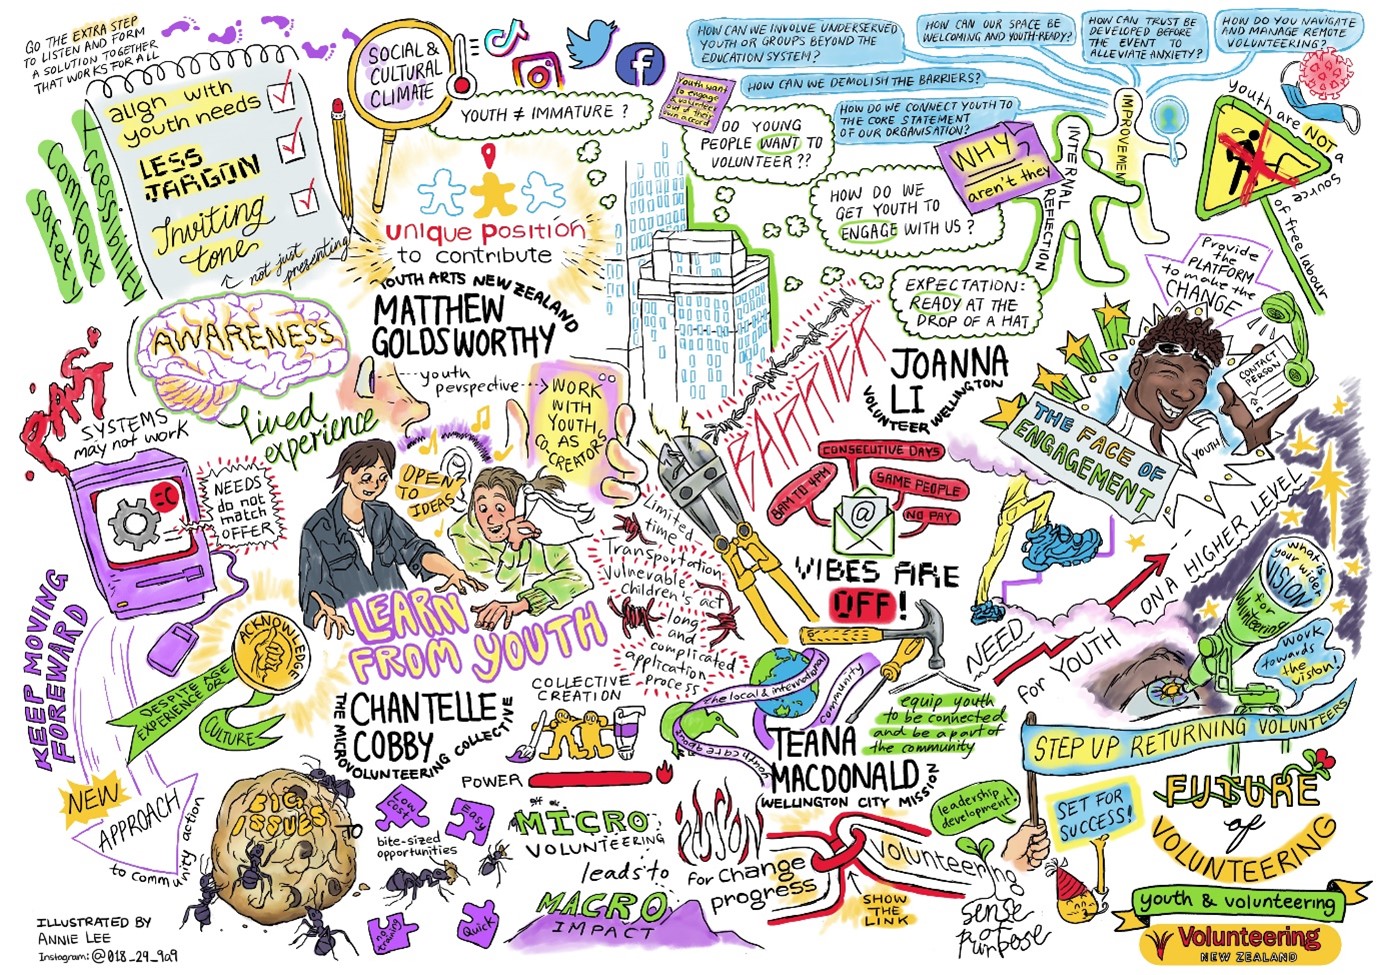 GO THE EXTRA STEP
TO LISTEN AND FORM
A SOLUTION TOGETHER
THAT WORKS FOR ALL
align with
youth needs
LESS
JARGON
Inviting
tone
not just
presenting
Accessibility
comfort
safety
SOCIAL &
CULTURAL
CLIMATE
YOUTH ≠ IMMATURE ?
unique position
to contribute
YOUTH ARTS NEW ZEALAND
MATTHEW
GOLDSWORTHY
youth
perspective
WORK
WITH
YOUTH
AS
CO-
CREATORS
AWARENESS
Lived
experience
HOW CAN WE INVOLVE UNDERSERVED
YOUTH OR GROUPS BEYOND THE
EDUCATION SYSTEM?
HOW CAN OUR SPACE BE
WELCOMING AND YOUTH-READY?
HOW CAN TRUST BE
DEVELOPED BEFORE
THE EVENT TO
ALLEVIATE ANXIETY?
HOW DO YOU NAVIGATE
AND MANAGE REMOTE
VOLUNTEERING?
HOW CAN WE DEMOLISH THE BARRIERS?
HOW DO WE CONNECT YOUTH TO
THE CORE STATEMENT
OF OUR ORGANISATION?
Youth want
to engage
& volunteer
out of their
own accord
DO YOUNG
PEOPLE WANT TO
VOLUNTEER ??
HOW DO WE
GET YOUTH TO
ENGAGE WITH US ?
WHY
aren't they
INTERVAL
REFLECTION
IMPROVEMENT
EXPECTATION:
READY AT THE
DROP OF A HAT
youth are NOT a
source of free labour
Provide
the
PLATFORM
to make the
CHANGE
CONTACT
PERSON
YOUTH
THE FACE OF
ENGAGEMENT
JOANNA
LI
VOLUNTEER WELLINGTON
BARRIER
CONSECUTIVE DAYS
8AM TO 4PM
SAME PEOPLE
NO PAY
@
VIBES ARE
OFF!
Limited
time
Transportation
Vulnerable
children's act
long
and
complicated
application
process
RANT
SYSTEMS
may not work
NEEDS
do not
match
OFFER
OPEN
TO
IDEAS
LEARN
FROM YOUTH
KEEP MOVING
FOREWARD
ACKNOWLEDGE
DESPITE AGE
EXPERIENCE OR
CULTURE
NEW
APPROACH
to community action
CHANTELLE
COBBY
THE MICROVOLUNTEERING COLLECTIVE
COLLECTIVE
CREATION
POWER
BIG
ISSUES
TO
Low
Cost
Easy
bite-sized
opportunities
no
training
Quick
MICRO
VOLUNTEERING
leads to
MACRO
IMPACT
the local & international
community
TEANA
MACDONALD
WELLINGTON CITY MISSION
equip youth
to be connected
and be a part of
the community
PASSION
for change
progress
volunteering
SHOW
THE
LINK
leadership
development!
sense
of
purpose
NEED
for YOUTH
ON A HIGHER LEVEL
what is
your wider
VISION
for
volunteering
work
towards
the
vision!
STEP UP RETURNING VOLUNTEERS
SET FOR
SUCCESS!
FUTURE
of
VOLUNTEERING
youth & volunteering
Volunteering
NEW ZEALAND
ILLUSTRATED BY
ANNIE LEE
Instagram: @018_29_9a9